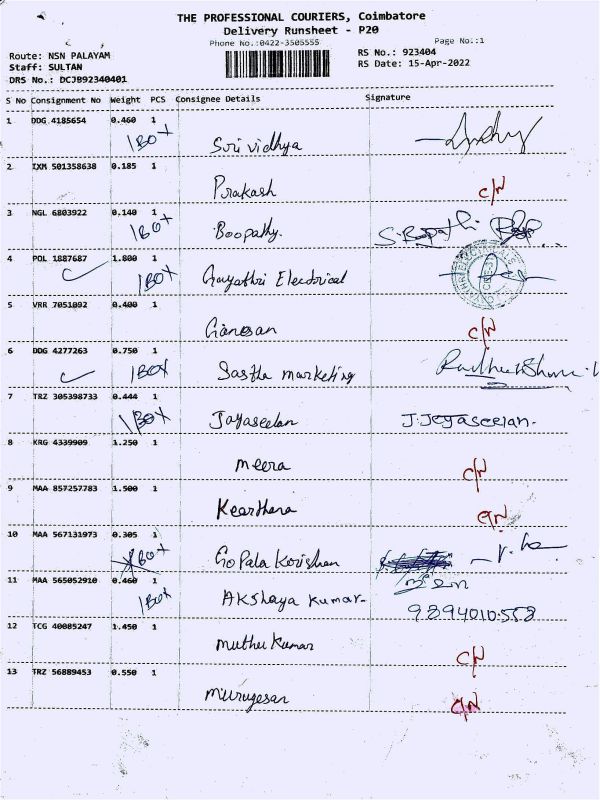 THE PROFESSIONAL COURIERS, Coimbatore
Delivery Runsheet - P20
Phone No.:0422-3505555 Page No.:1
Route: NSN PALAYAM RS No.: 923404
Staff: SULTAN RS Date: 15-Apr-2022
DRS No.: DCJB92340401
S No Consignment No Weight PCS Consignee Details Signature
1 DDG 4185654 0.460 1
1 BOX Sri vidhya
2 IXM 501358638 0.185 1
Prakash C/N
3 NGL 6803922 0.140 1
1 BOX Boopathy. S. Boopathi
4 POL 1887687 1.800 1
1 BOX Gayathri Electrical
5 VRR 7051092 0.400 1
Ganesan C/N
6 DDG 4277263 0.750 1
1 BOX Sastha marketing
7 TRZ 305398733 0.444 1
1 BOX Jayaseelan J. Jeyaseelan.
8 KRG 4339909 1.250 1
meera C/N
9 MAA 857257783 1.500 1
Keerthana C/N
10 MAA 567131973 0.305 1
BOX Gopala Korishnan
11 MAA 565052910 0.460 1
1 BOX Akshaya Kumar- 9894010558
12 TCG 40085247 1.450 1
muthu Kumar C/N
13 TRZ 56889453 0.550 1
murugesan C/N